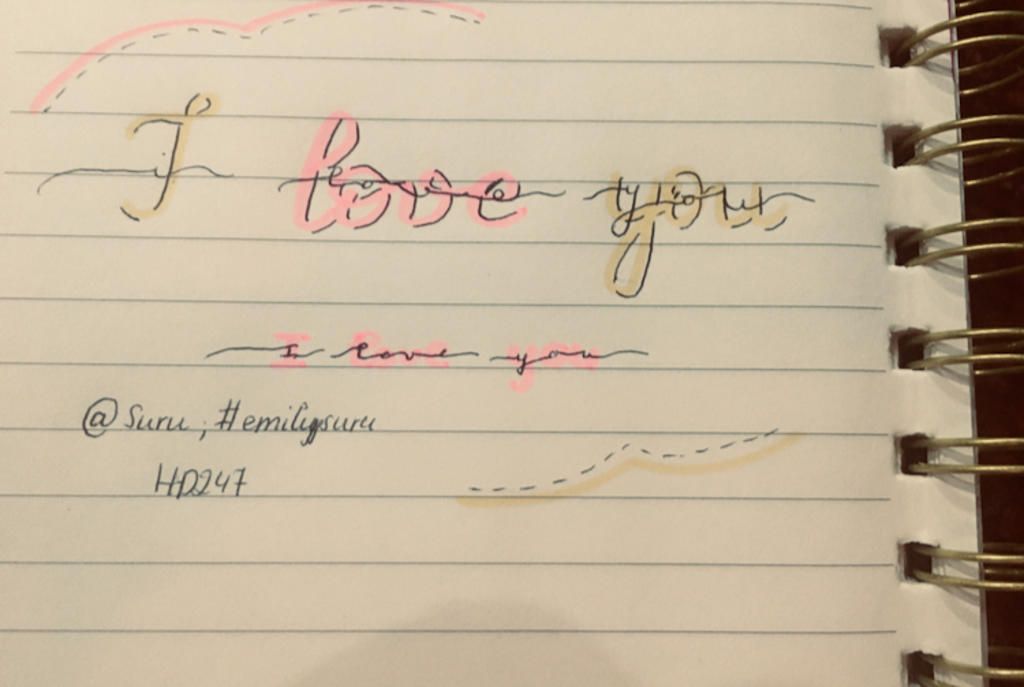 I love you
I love you
@suru, #emilysuru
HD247